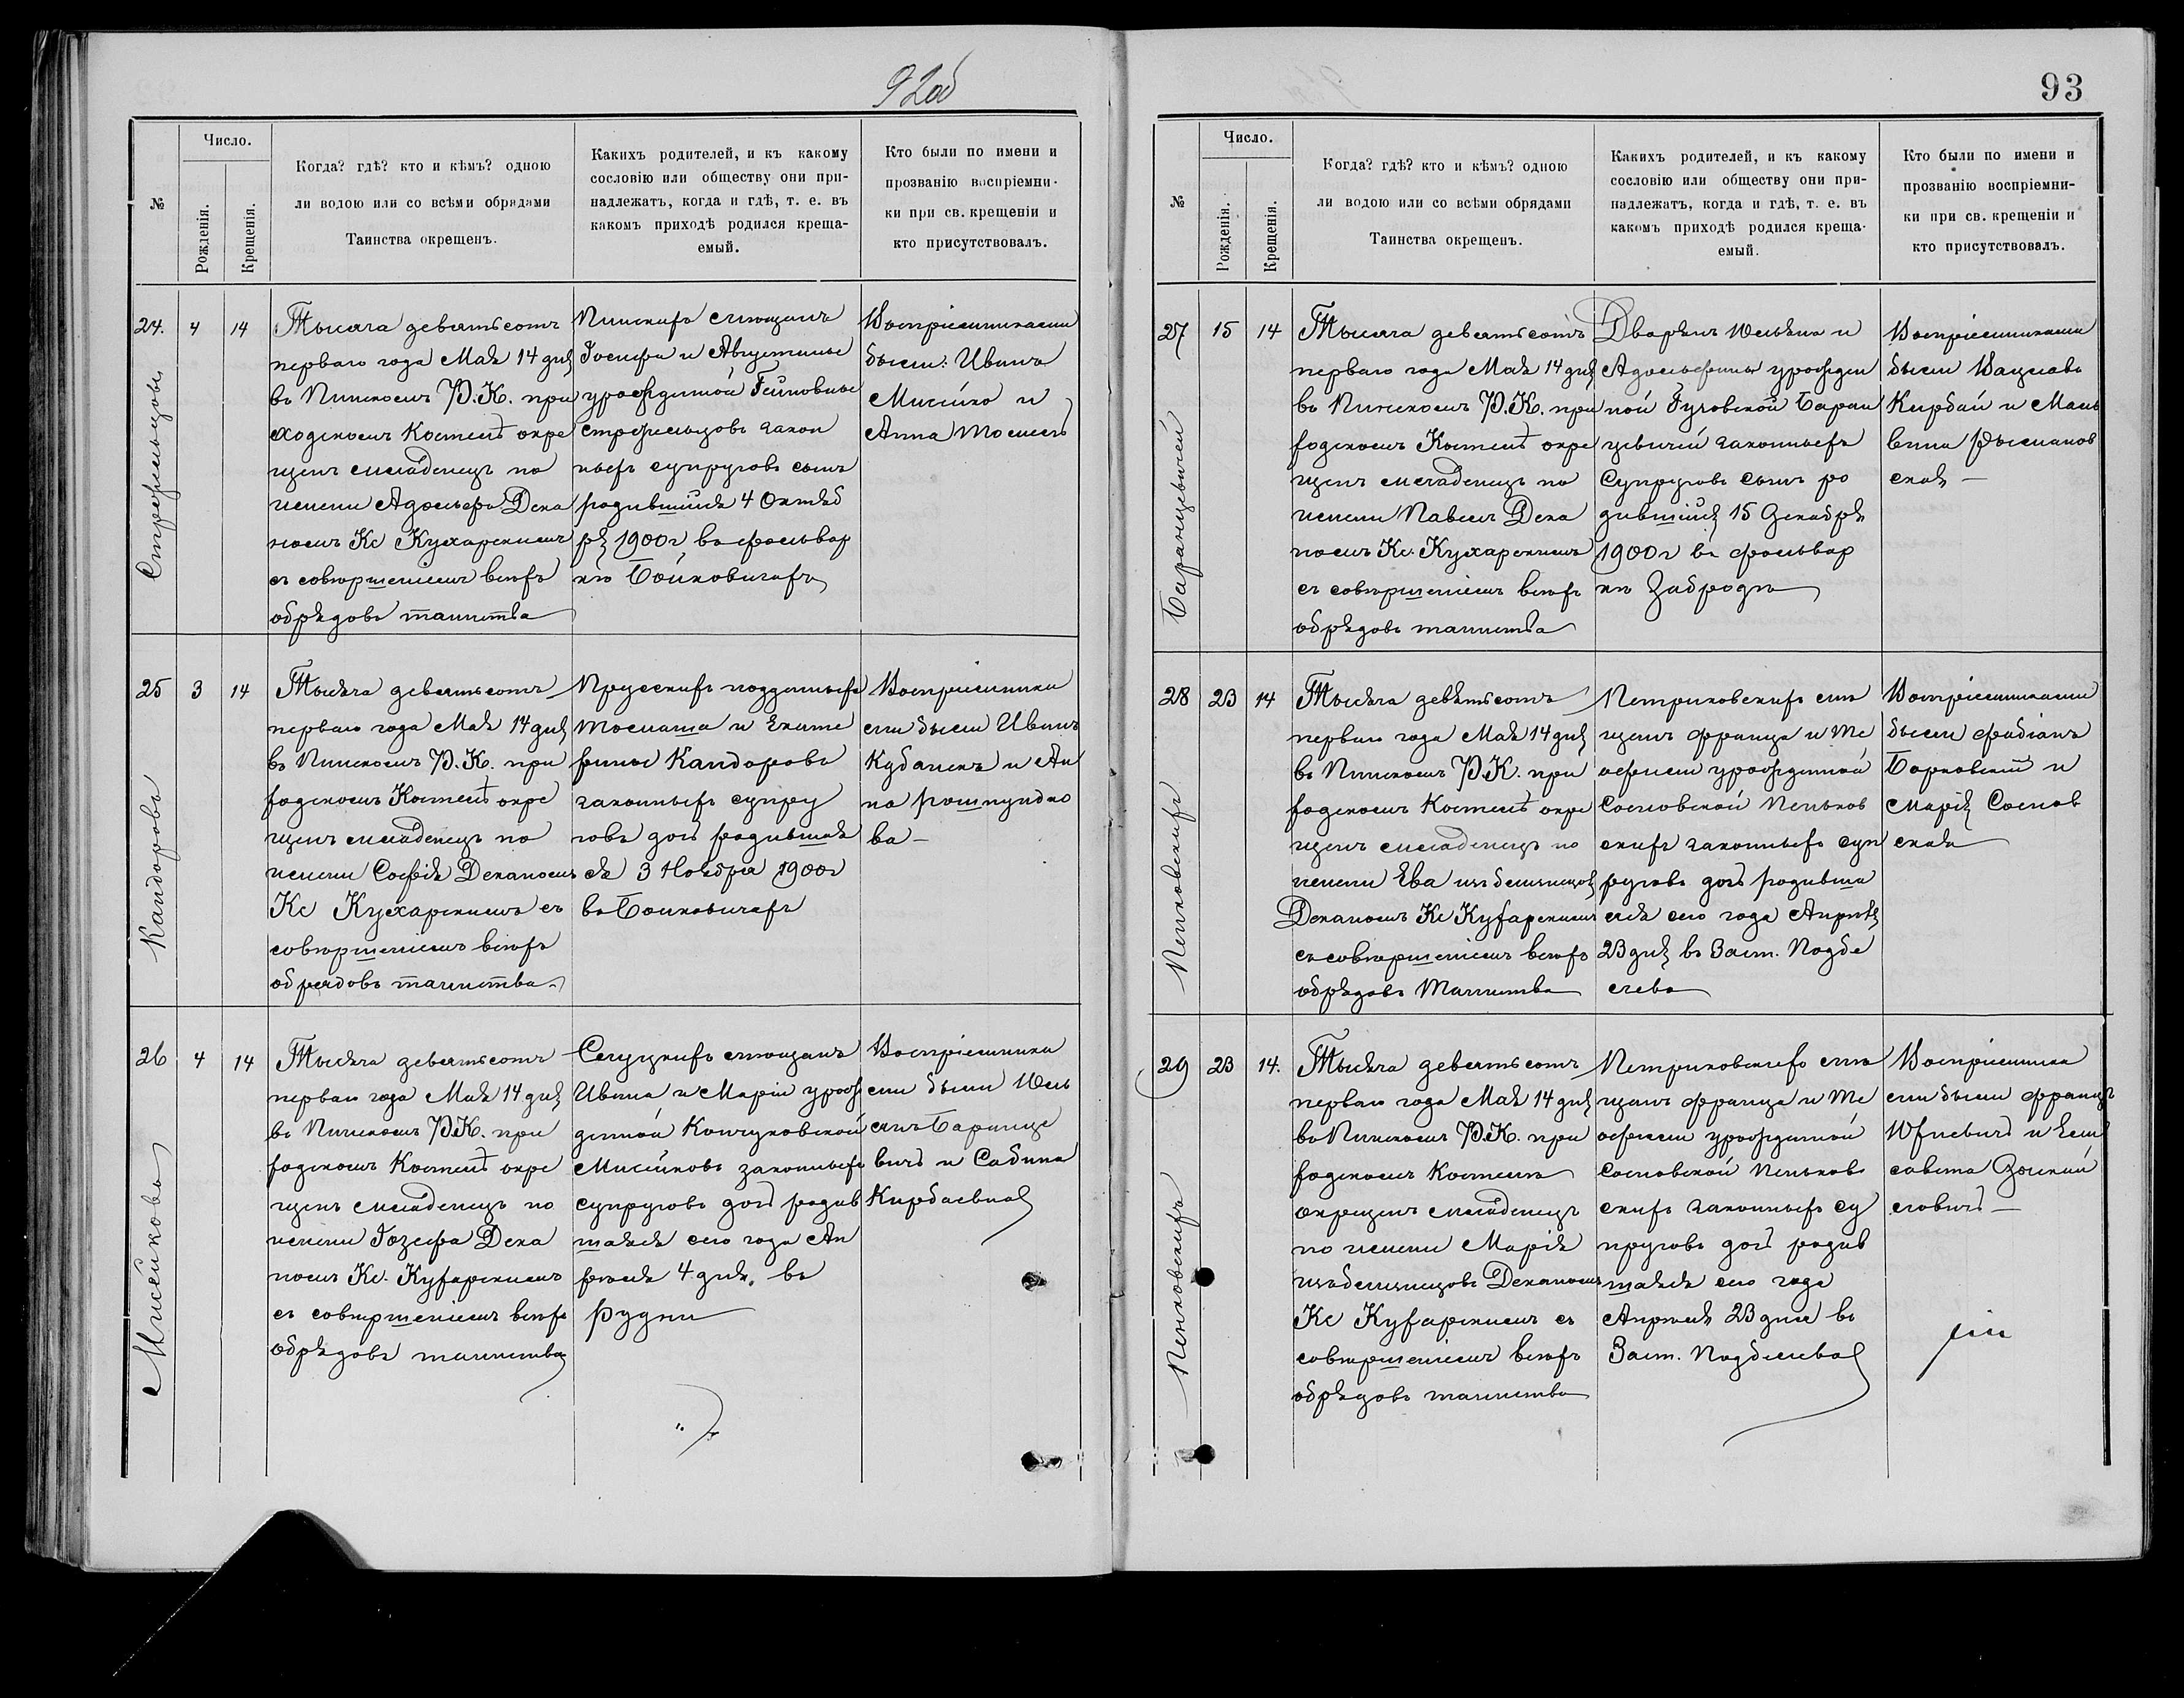 92об
№
Число.
Рожденія.
Крещенія.
Когда? гдѣ? кто и кѣмъ? одною
ли водою или со всѣми обрядами
Таинства окрещенъ.
Какихъ родителей, и къ какому
сословію или обществу они при-
надлежатъ, когда и гдѣ, т. е. въ
какомъ приходѣ родился креща-
емый.
Кто были по имени и
прозванію воспріемни-
ки при св. крещеніи и
кто присутствовалъ.
24. 4 14
Тысяча девятьсотъ
перваго года Мая 14 дня
въ Пинскомъ Р.К. при
ходскомъ Костелѣ окре
щенъ младенецъ по
имени Адольфъ Дека
номъ Кс Кухарскимъ
съ совершеніемъ всѣхъ
обрядовъ таинства
Пинскихъ мѣщанъ
Іосифа и Августины
урожденной
законъ
ныхъ супруговъ сынъ
родившійся 4 Октяб
ря 1900г въ фольвар
кѣ Бойковичахъ
Воспріемниками
были: Иванъ
Мисейко и
Анна
25 3 14
Кандорова
Тысяча девятьсотъ
перваго года Мая 14 дня
въ Пинскомъ Р.К. при
ходскомъ Костелѣ окре
щенъ младенецъ по
имени Софія Деканомъ
Кс Кухарскимъ съ
совершеніемъ всѣхъ
обрядовъ таинства
Прусскихъ подданныхъ
Томаша и Екате
рины Кандоровъ
законныхъ супру
говъ дочь родившая
ся 3 Ноября 1900г
въ Бойковичахъ
Воспріемника
ми были Иванъ
Кубанекъ и Ан
на
ва
26 4 14
Мисейкова
Тысяча девятьсотъ
перваго года Мая 14 дня
въ Пинскомъ Р.К. при
ходскомъ Костелѣ окре
щенъ младенецъ по
имени Іозефа Дека
номъ Кс. Кухарскимъ
съ совершеніемъ всѣхъ
обрядовъ таинства
Слуцкихъ мѣщанъ
Ивана и Маріи урож
денной
Мисейковъ законныхъ
супруговъ дочь родив
шаяся сего года Ап
рѣля 4 дня въ
Рудни
Воспріемника
ми были Юль
янъ Баранце
вичъ и Сабина
Кирбаевна
93
№
Число.
Рожденія.
Крещенія.
Когда? гдѣ? кто и кѣмъ? одною
ли водою или со всѣми обрядами
Таинства окрещенъ.
Какихъ родителей, и къ какому
сословію или обществу они при-
надлежатъ, когда и гдѣ, т. е. въ
какомъ приходѣ родился креща-
емый.
Кто были по имени и
прозванію воспріемни-
ки при св. крещеніи и
кто присутствовалъ.
27 15 14
Баранцевичей
Тысяча девятьсотъ
перваго года Мая 14 дня
въ Пинскомъ Р.К. при
ходскомъ Костелѣ окре
щенъ младенецъ по
имени Павелъ Дека
номъ Кс. Кухарскимъ
съ совершеніемъ всѣхъ
обрядовъ таинства
Дворянъ Юльяна и
Адольфины урожден
ной Гуговской Баран
цевичей законныхъ
Супруговъ сынъ ро
дившійся 15 Декабря
1900г въ фольвар
кѣ Забродѣ
Воспріемниками
были Вацлавъ
Кирбай и Маль
вина
ская
28 23 14
Пеньковскихъ
Тысяча девятьсотъ
перваго года Мая 14 дня
въ Пинскомъ Р.К. при
ходскомъ Костелѣ окре
щенъ младенецъ по
имени Ева изъ близнецовъ
Деканомъ Кс Кухарскимъ
съ совершеніемъ всѣхъ
обрядовъ Таинства
Петриковскихъ мѣ
щанъ Франца и Те
офили урожденной
Сосновской Пеньков
скихъ законныхъ суп
руговъ дочь родивша
яся сего года Апрѣля
23 дня въ Заст. Подбе
лева
Воспріемниками
были Фабіанъ
Борковскій и
Марія Соснов
ская
29 23 14.
Пеньковскихъ
Тысяча девятьсотъ
перваго года Мая 14 дня
въ Пинскомъ Р.К. при
ходскомъ Костелѣ
окрещенъ младенецъ
по имени Марія
изъ близнецовъ Деканомъ
Кс Кухарскимъ съ
совершеніемъ всѣхъ
обрядовъ таинства
Петриковскихъ мѣ
щанъ Франца и Те
офили урожденной
Сосновской Пеньков
скихъ законныхъ су
пруговъ дочь родив
шаяся сего года
Апрѣля 23 дня въ
Заст. Подбелева
Воспріемника
ми были Францъ
Юхневичъ и Ели
савета